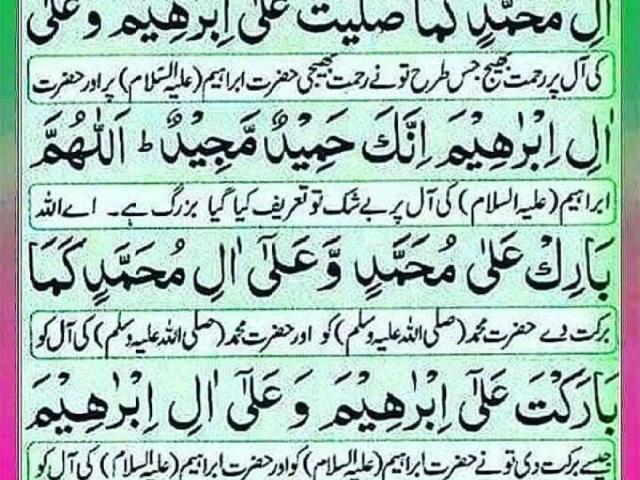 اٰلِ مُحَمَّدٍ كَمَا صَلَّيْتَ عَلٰٓى اِبْرٰهِيْمَ وَعَلٰٓى
کی آل پر رحمت بھیج جس طرح تو نے رحمت بھیجی حضرت ابراہیم (علیہ السّلام) پر اور حضرت
اٰلِ اِبْرٰهِيْمَ اِنَّكَ حَمِيْدٌ مَّجِيْدٌ ط اَللّٰهُمَّ
ابراہیم (علیہ السلام) کی آل پر بے شک تو تعریف کیا گیا بزرگ ہے۔ اے اللہ
بَارِكْ عَلٰى مُحَمَّدٍ وَّ عَلٰٓى اٰلِ مُحَمَّدٍ كَمَا
برکت دے حضرت محمد (صلی اللہ علیہ وسلم) کو اور حضرت محمد (صلی اللہ علیہ وسلم) کی آل کو
بَارَكْتَ عَلٰٓى اِبْرٰهِيْمَ وَ عَلٰٓى اٰلِ اِبْرٰهِيْمَ
جیسے برکت دی تو نے حضرت ابراہیم (علیہ السلام) کو اور حضرت ابراہیم (علیہ السلام) کی آل کو